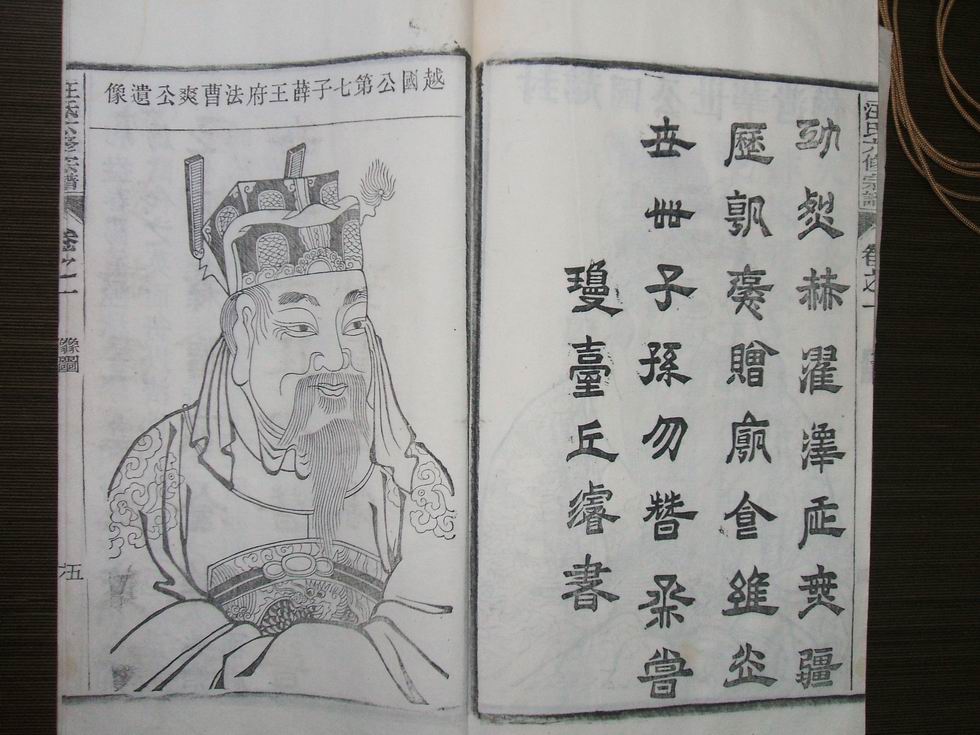 汪氏六修宗譜 卷之一
功烈赫濯澤無疆
歷朝褒贈廟食維光
世世子孫勿替烝嘗
瓊臺丘濬書
越國公第七子薛王府法曹爽公遺像
汪氏六修宗譜 卷之一 像圖 五